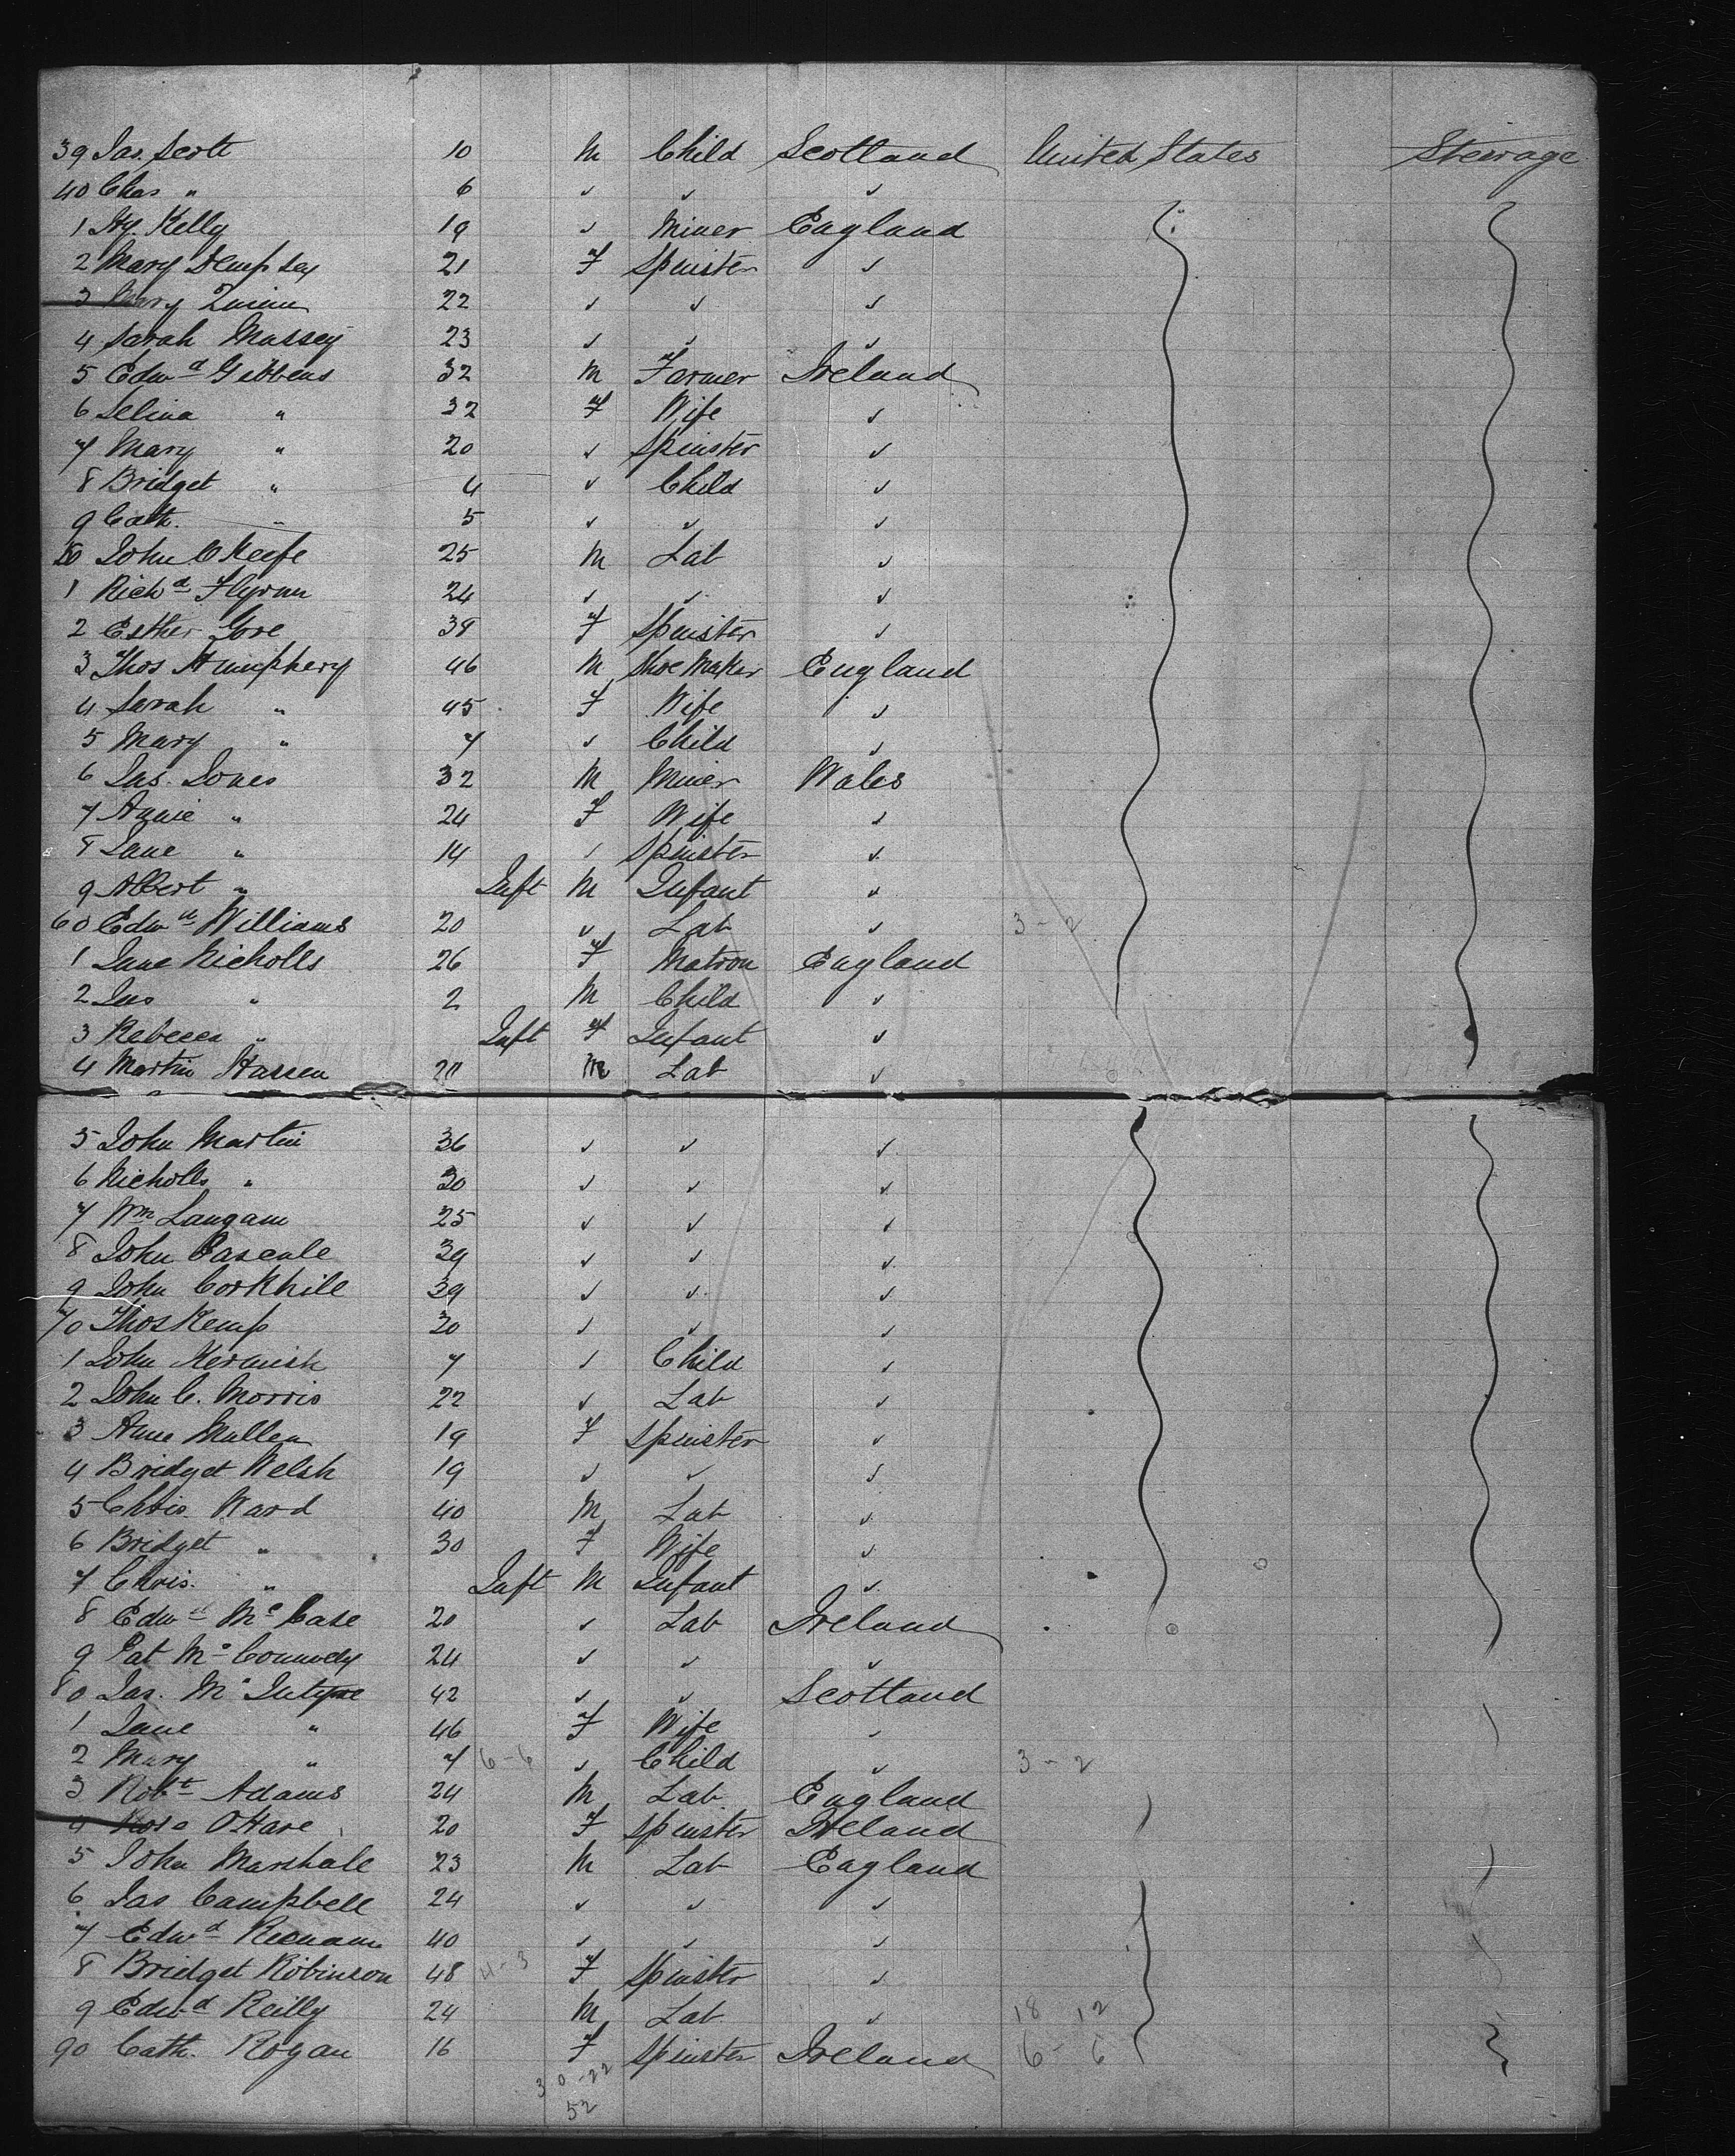 39 Jas. Scott 10 M Child Scotland United States Steerage
40 Chas " 6 ✓ ✓ ✓
1 Hy. Kelly 19 ✓ Miner England
2 Mary Dempsey 21 F Spinster ✓
3 Mary Quinn 22 ✓ ✓ ✓
4 Sarah Massey 23 ✓ ✓ ✓
5 Edwd Gibbens 32 M Farmer Ireland
6 Selina " 32 F Wife ✓
7 Mary " 20 ✓ Spinster ✓
8 Bridget " 4 ✓ Child ✓
9 Cath. " 5 ✓ ✓ ✓
50 John O'Keefe 25 M Lab ✓
1 Richd Flynn 24 ✓ ✓ ✓
2 Esther Gore 38 F Spinster ✓
3 Thos Humphery 46 M Shoe Maker England
4 Sarah " 45 F Wife ✓
5 Mary " 7 ✓ Child ✓
6 Jas. Jones 32 M Miner Wales
7 Annie " 24 F Wife ✓
8 Jane " 14 ✓ Spinster ✓
9 Albert " Inft M Infant ✓
60 Edwd Williams 20 ✓ Lab ✓ 3 - 2
1 Jane Nicholls 26 F Matron England
2 Jas " 2 M Child ✓
3 Rebecca " Inft F Infant ✓
4 Martin Hassen M Lab ✓
5 John Martin 36 ✓ ✓ ✓
6 Nicholls " 30 ✓ ✓ ✓
7 Wm Langam 25 ✓ ✓ ✓
8 John 39 ✓ ✓ ✓
9 John Corkhill 39 ✓ ✓ ✓
70 Thos Kemp 30 ✓ ✓ ✓
1 John Kermish 7 ✓ Child ✓
2 John C. Morris 22 ✓ Lab ✓
3 Anne Mullen 19 F Spinster ✓
4 Bridget Welsh 19 ✓ ✓ ✓
5 Chris. Ward 40 M Lab ✓
6 Bridget " 30 F Wife ✓
7 Chris. " Inft M Infant ✓
8 Edwd McCabe 20 ✓ Lab Ireland
9 Pat Mc 24 ✓ ✓ ✓
80 Jas. McIntyre 42 ✓ ✓ Scotland
1 Jane " 46 F Wife ✓
2 Mary " 7 ✓ Child ✓ 3 - 2
3 Robt Adams 24 M Lab England
4 Rose O'Hare 20 F Spinster Ireland
5 John Marshall 23 M Lab England
6 Jas Campbell 24 ✓ ✓ ✓
7 Edwd 40 ✓ ✓ ✓
8 Bridget Robinson 48 4-3 F Spinster ✓
9 Edwd Reilly 24 M Lab ✓ 18 12
90 Cath. Rogan 16 F Spinster Ireland 6 - 6
30-22
52